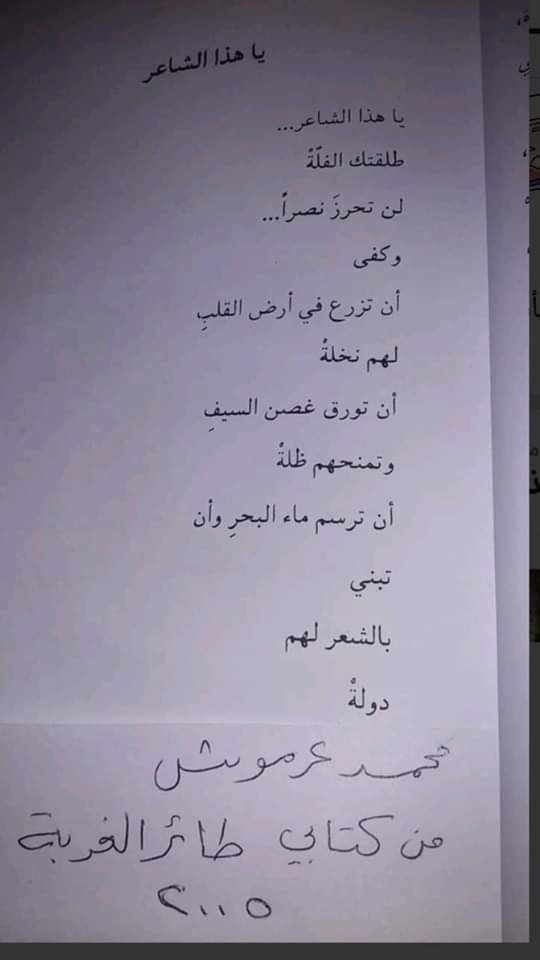 يا هذا الشاعر
يا هذا الشاعر...
طلقتك الفلّةْ
لن تحرزَ نصراً...
وكفى
أن تزرع في أرض القلبِ
لهم نخلةْ
أن تورق غصن السيفِ
وتمنحهم ظلةْ
أن ترسم ماء البحرِ وأن
تبني
بالشعر لهم
دولةْ
محمد عرموش
من كتابي طائر الغربة
٢٠٠٥